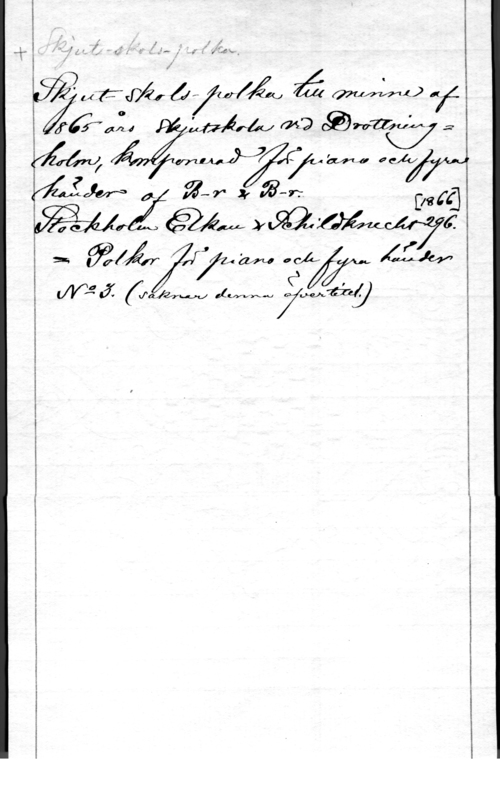 + Skjut-skols-polka.
Skjut-skols-polka till minne af
1865 års Skjutskola vid Drottning=
holm, komponerad för piano och fyra
händer af B-r & B-r.
[1866]
Stockholm Elkan & Schildknecht 296.
= Polkor för piano och fyra händer
Nº 3. (saknar denna öfvertitel.)